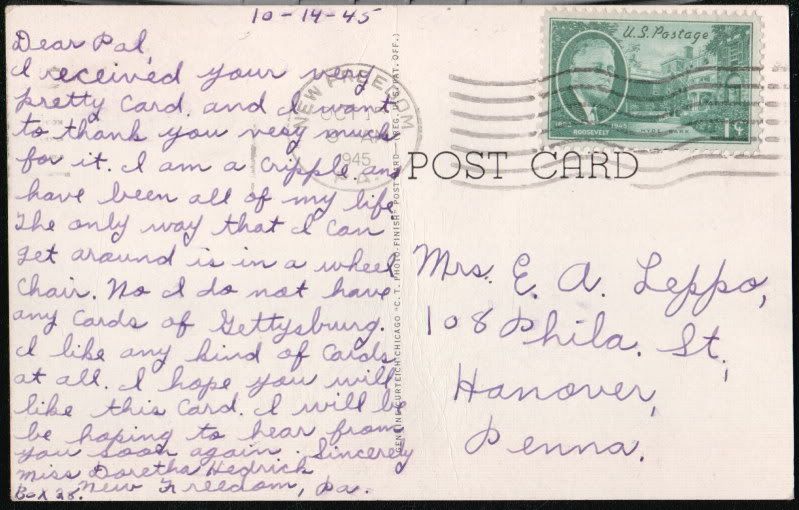 10-14-45
Dear Pal,
I received your very
pretty Card. and I want
to thank you very much
for it. I am a Cripple and
have been all of my life.
The only way that I can
get around is in a wheel
Chair. No I do not have
any Cards of Gettysburg.
I like any kind of Cards
at all. I hope you will
like this Card. I will be
be hoping to hear from
you soon again. Sincerely
Miss Doretha Hedrich
Box 28. New Freedom, Pa.
NEW FREEDOM
OCT
1945
PA
GENUINE CURTEICH-CHICAGO "C. T. PHOTO-FINISH" POST CARD (REG. U. S. PAT. OFF.)
U.S. Postage
1945
ROOSEVELT
HYDE PARK
1¢
POST CARD
Mrs. E. A. Leppo,
108 Phila. St.,
Hanover,
Penna.